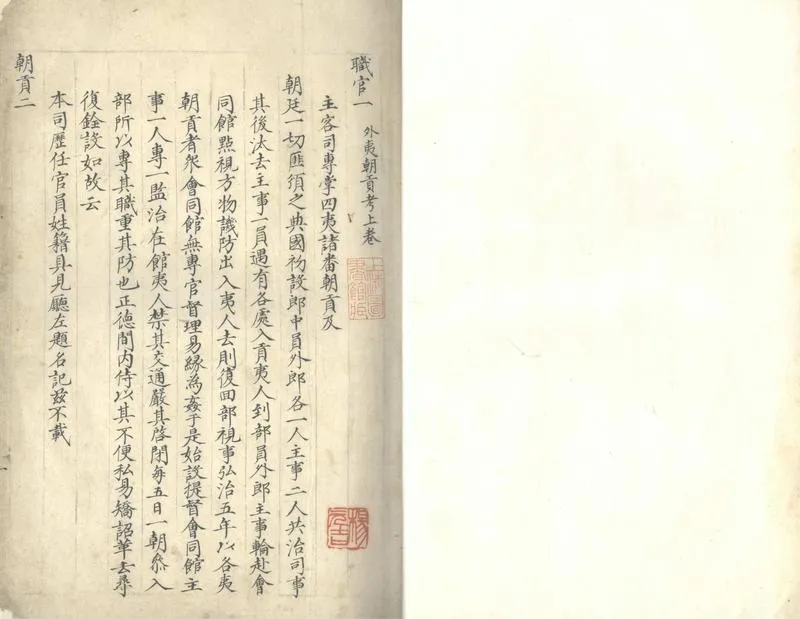 職官一 外夷朝貢考上卷
主客司專掌四夷諸番朝貢及
朝廷一切匪須之典國初設郎中員外郎各一人主事二人共治司事
其後汰去主事一員遇有各處入貢夷人到部員外郎主事輪赴會
同館點視方物譏防出入夷人去則復回部視事弘治五年以各夷
朝貢者眾會同館無專官督理易緣為姦于是始設提督會同館主
事一人專一監治在館夷人禁其交通嚴其啓閉每五日一朝叅入
部所以專其職重其防也正德間內侍以其不便私易矯詔革去尋
復銓設如故云
本司歷任官員姓籍具見廳左題名記茲不載
朝貢二
上海圖書館藏